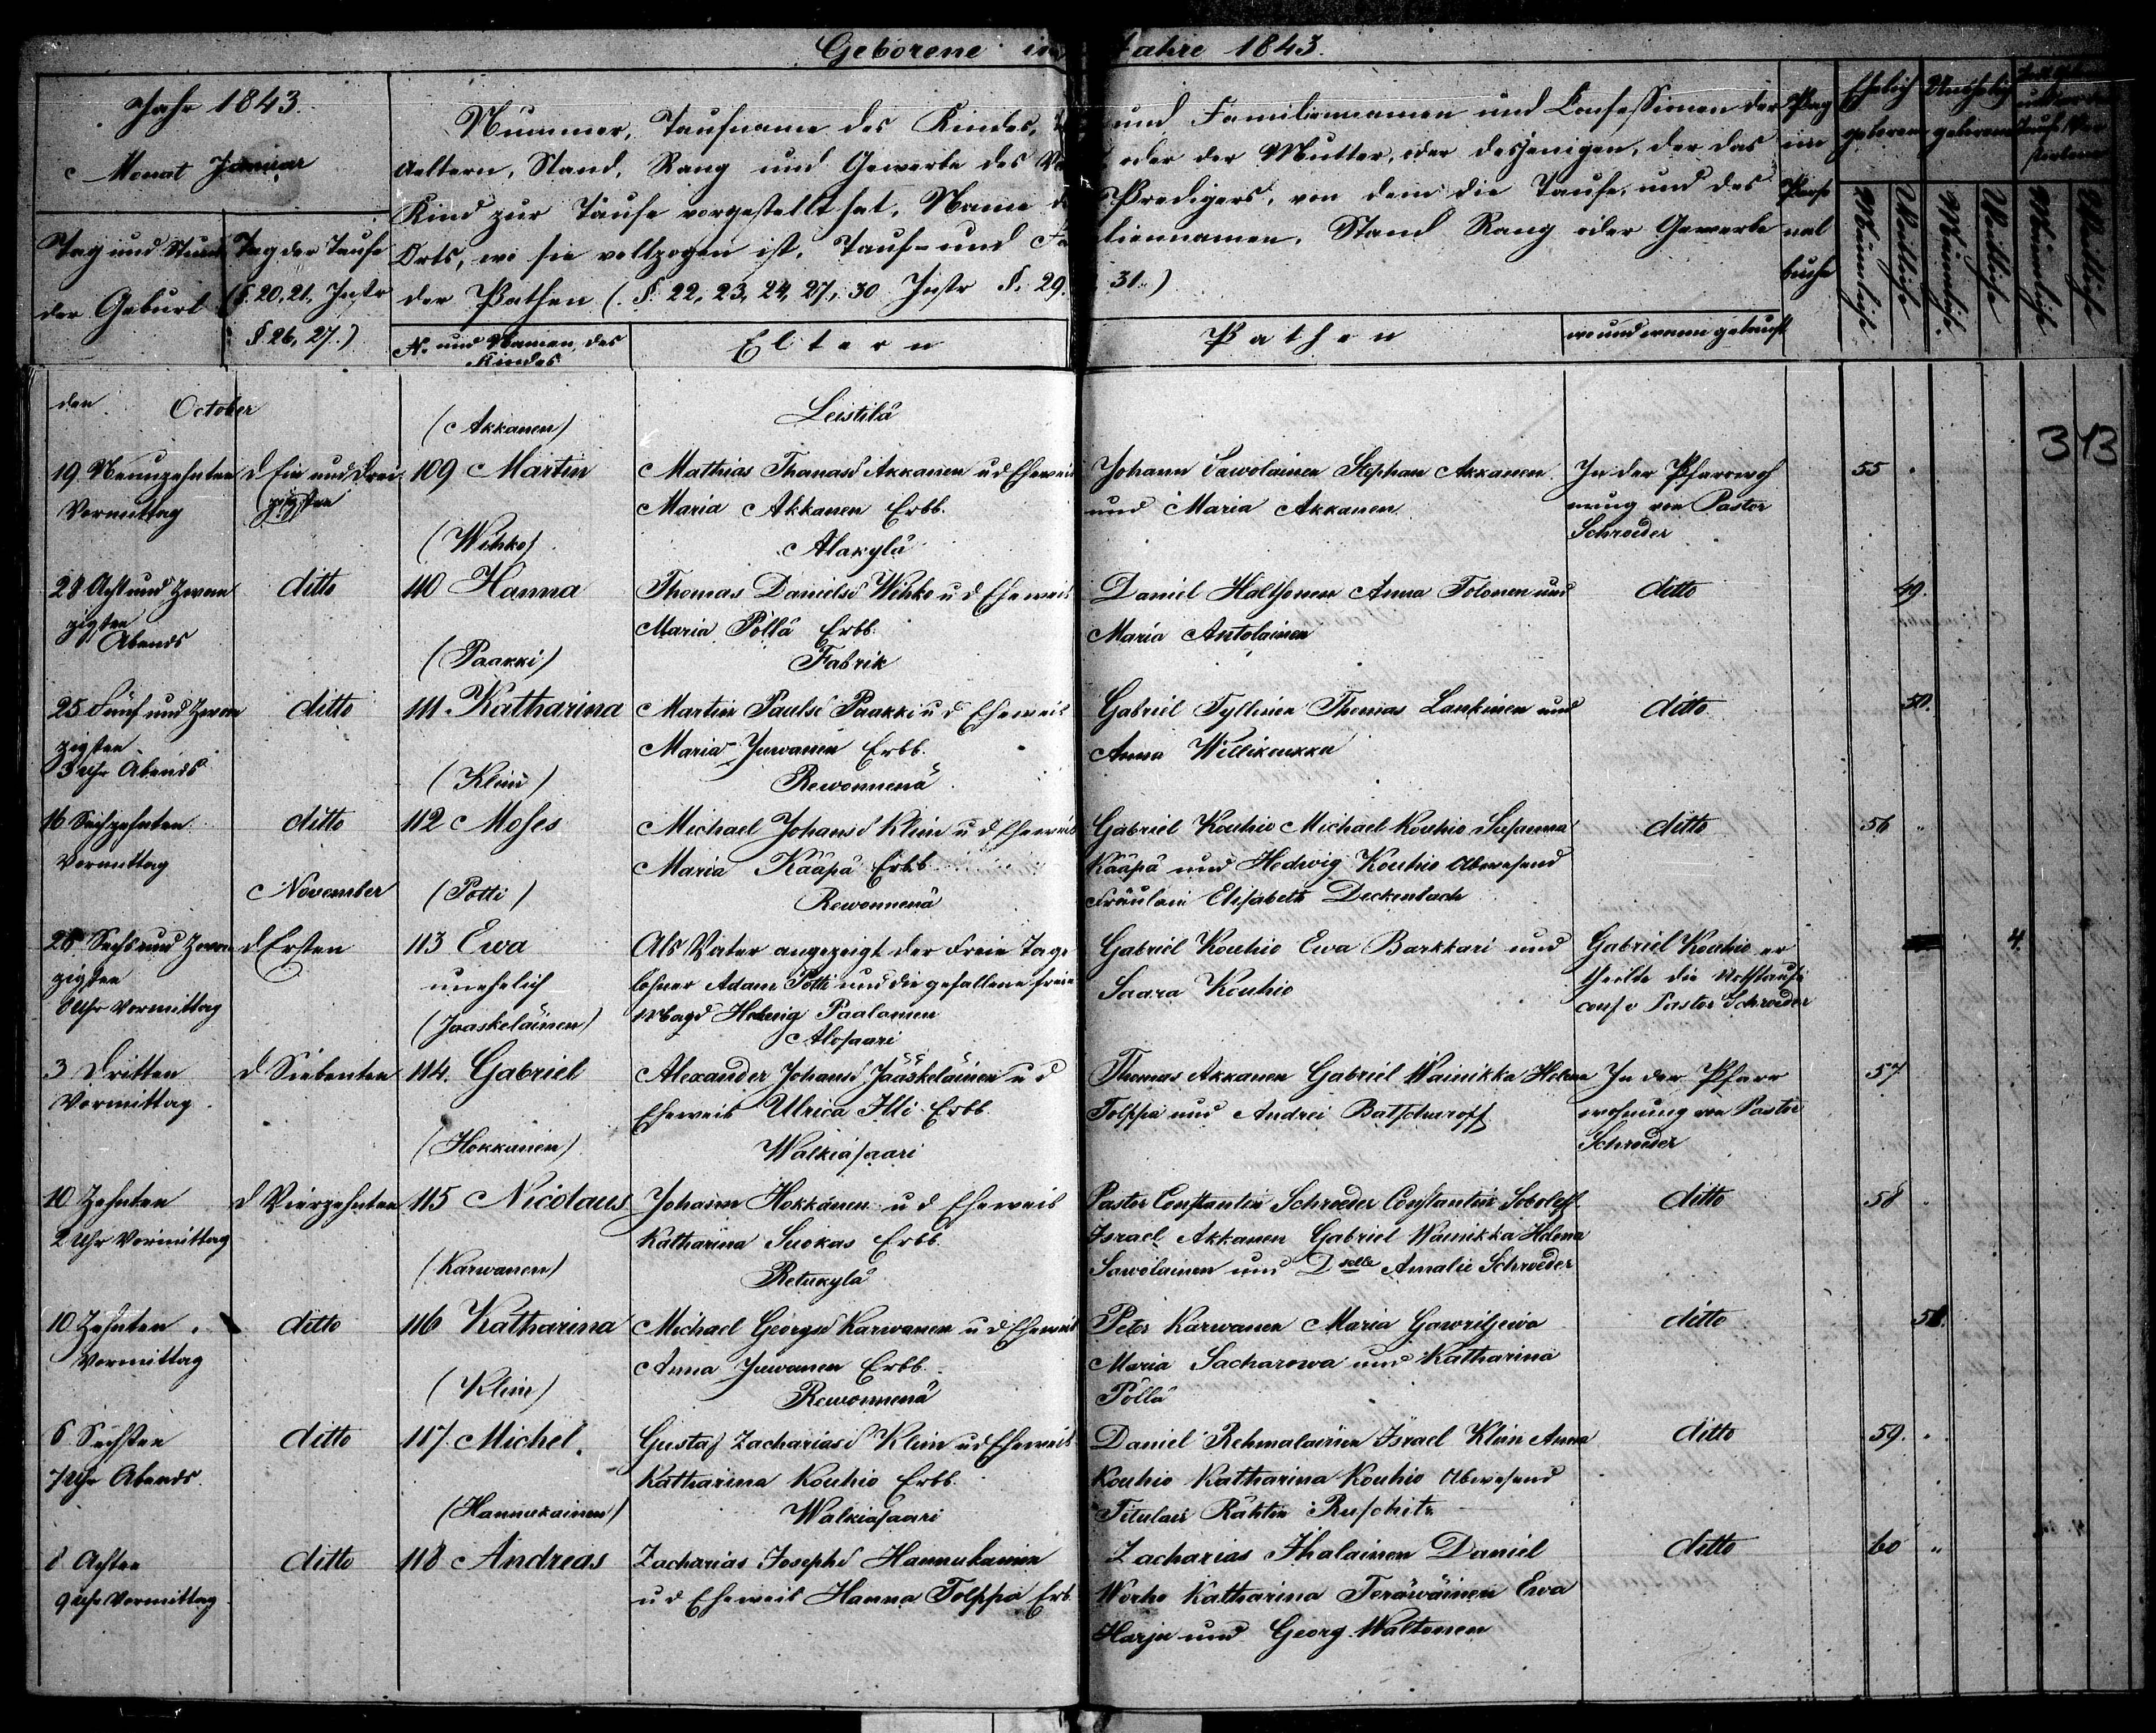 Geborene im Jahre 1843.
Jahr 1843.
Monat Januar
Tag und Stunde der Geburt
Tag der Taufe (§. 20, 21, Instr § 26, 27.)
Nummer, Taufname des Kindes, und Familiennamen und Confessionen der
Aeltern, Stand, Rang und Gewerbe des oder der Mutter, oder desjenigen, der das
Kind zur Taufe vorgestellt hat. Name d Predigers, von dem die Taufe, und des
Orts, wo sie vollzogen ist, Tauf- und Familiennamen, Stand Rang oder Gewerbe
der Pathen (. §. 22, 23, 24, 27, 30 Instr §. 29. 31.)
Pag im Personalbuche
Ehelich geboren
Unehelich geboren
Männliche
Weibliche
Männliche
Weibliche
Männliche
Weibliche
No und Namen des Kindes
Eltern
Pathen
wo und wann getauft
313
den October
(Akkanen)
Leistilä
19 Neunzehnten d Ein und Drei 109 Martin Mathias Thomasd Akkanen u d Eheweib Johann Sawolainen Stephan Akkanen In der Pfarrwoh 55
Vormittag zigsten Maria Akkanen Erbb. und Maria Akkanen nung von Pastor
Schroeder
(Wihko) Alakylä
28 Acht und Zwan ditto 110 Hanna Thomas Danielsd Wihko u d Eheweib Daniel Halthonen Anna Tolonen und ditto 49.
zigsten Maria Pöllä Erbb. Maria Antolainen
Abends
(Paakki) Fabrik
25 Fünf und Zwan ditto 111. Katharina Martin Paulsd Paakki u d Eheweib Gabriel Tyllinen Thomas Lankinen und ditto 50.
zigsten Maria Juwanen Erbb. Anna Willikoukka
3 Uhr Abends
(Klein) Rewonnenä
16 Sechzehnten ditto 112 Moses Michael Johansd Klein u d Eheweib Gabriel Kouhio Michael Kouhio Susanna ditto 56
Vormittag Maria Kääpä Erbb Kääpä und Hedwig Kouhio Abwesend
November (Potti) Rewonnenä Fräulein Elisabeth Deckenbach
26 Sechs und Zwan d Ersten 113 Ewa Als Vater angezeigt der Freie Tage Gabriel Kouhio Ewa Barkkari und Gabriel Kouhio er 4.
zigsten unehelich löhner Adam Potti und die gefallene freie Saara Kouhio theilte die Nothtaufe
Uhr Vormittag Magd Hedwig Paalanen conf v Pastor Schroeder
(Jaaskeläinen) Alosaari
3 Dritten d Siebenten 114. Gabriel Alexander Johansd Jääskeläinen u d Thomas Akkanen Gabriel Wainikka Helena In der Pfarr 57
Vormittag Eheweib Ulrica Illi Erbb. Tolppa und Andrei Batscharoff wohnung von Pastor
Schroeder
(Hokkanen) Walkiasaari
10 Zehnten d Vierzehnten 115 Nicolaus Johann Hokkanen u d Eheweib Pastor Constantin Schroeder Constantin Soboleff ditto 58
2 Uhr Vormittag Katharina Suokas Erbb. Israel Akkanen Gabriel Wainikka Helena
(Karwanen) Retukylä Sawolainen und Dselle Amalie Schroeder
10 Zehnten ditto 116 Katharina Michael Georgsd Karwanen u d Eheweib Peter Karwanen Maria Gawriljewa ditto 51.
Vormittag Anna Juwanen Erbb. Maria Sacharowa und Katharina
(Klein) Rewonnenä Pöllä
6 Sechsten ditto 117. Michel. Gustaf Zachariasd Klein u d Eheweib Daniel Rehmalainen Israel Klein Anna ditto 59.
7 Uhr Abends. Katharina Kouhio Erbb. Kouhio Katharina Kouhio Abwesend
(Hannukainen) Walkiasaari Titulair Räthin Ruschitz
8 Achten ditto 118 Andreas Zacharias Josephsd Hannukainen Zacharias Ihalainen Daniel ditto 60
9 Uhr Vormittag u d Eheweib Hanna Tolppa Erb. Worho Katharina Teräwäinen Ewa
Harju und Georg Waltonen